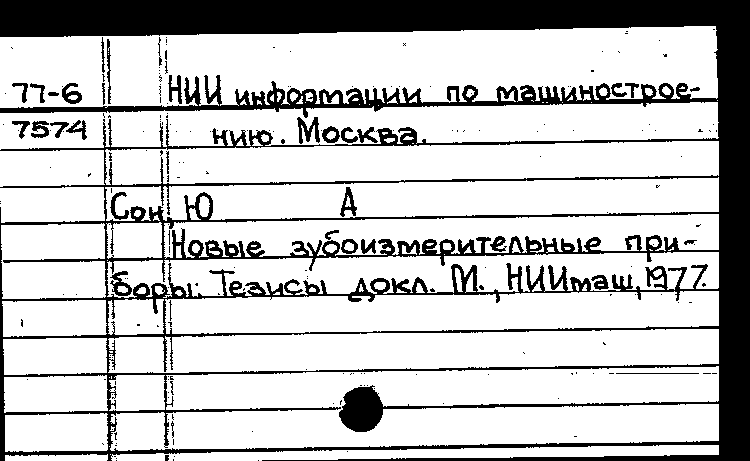 77-6 НИИ информации по машинострое-
7574 нию. Москва.
Сон, Ю А
Новые зубоизмерительные при-
боры: Тезисы докл. М., НИИмаш, 1977.